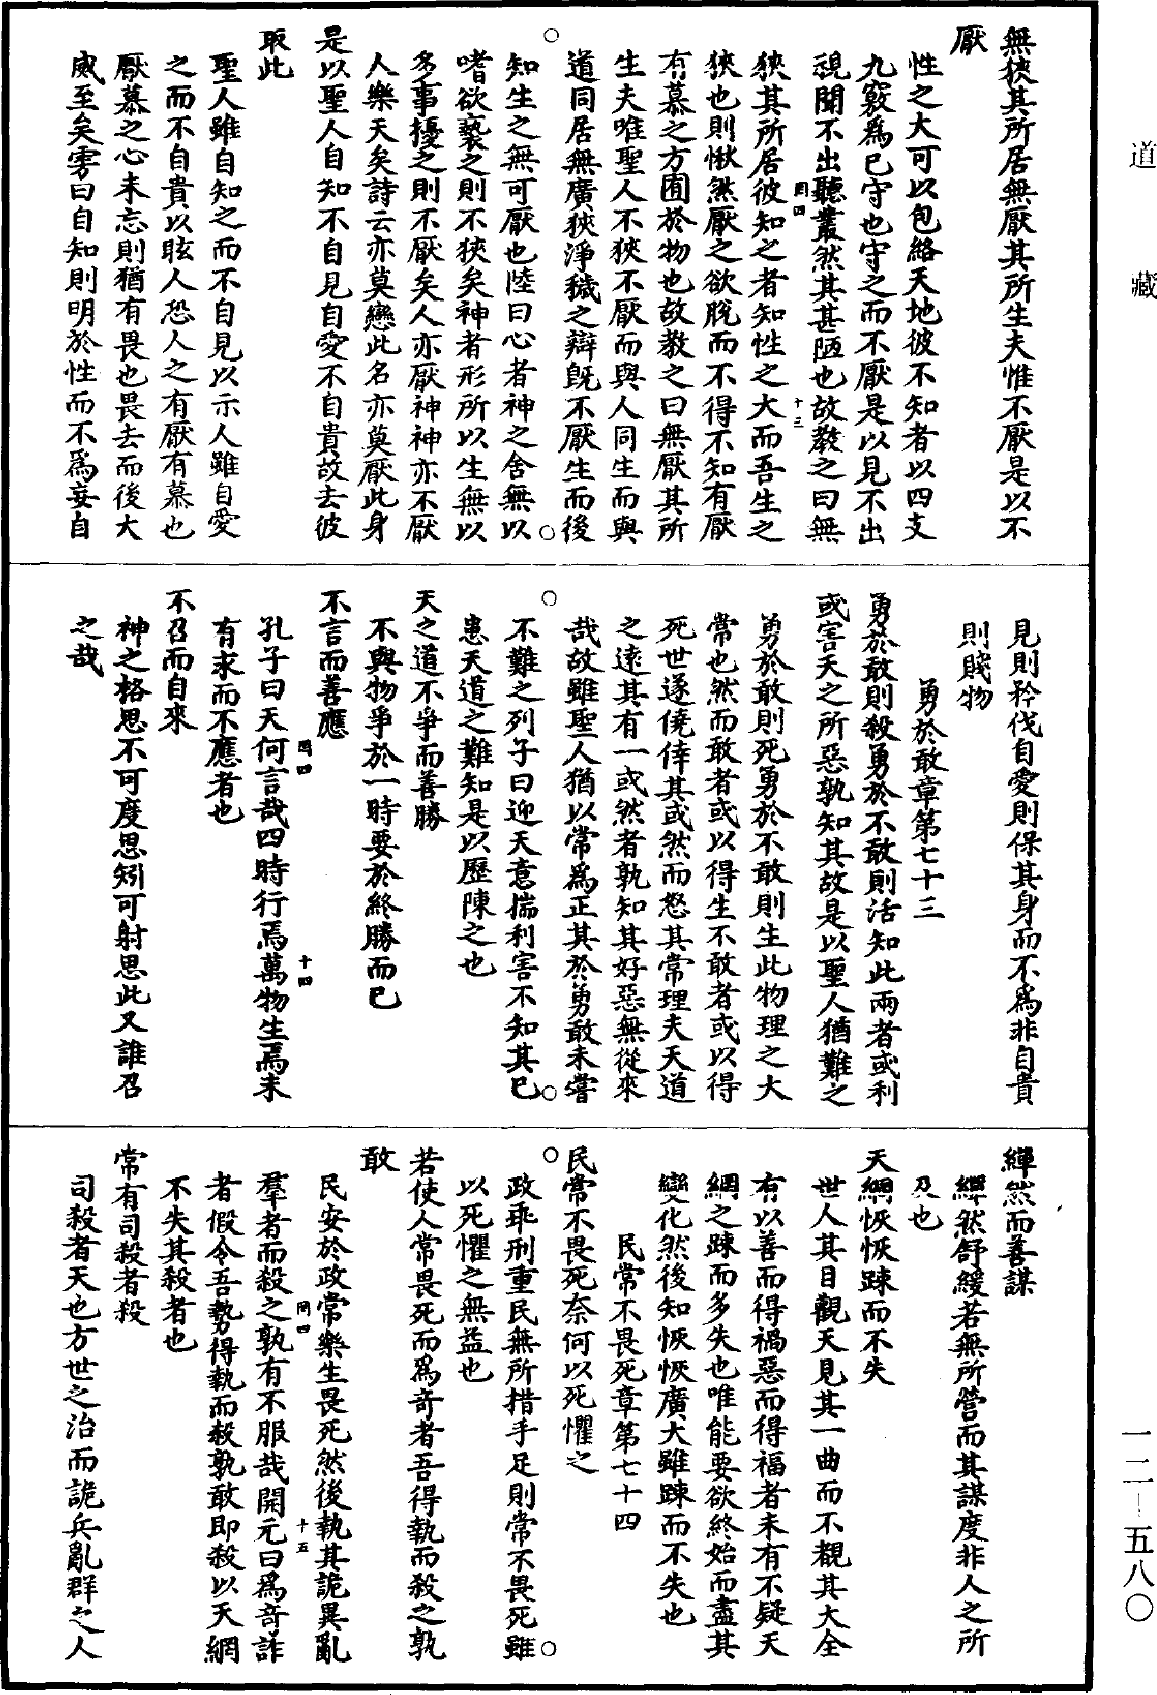 道藏
無狹其所居無厭其所生夫惟不厭是以不
厭
性之大可以包絡天地彼不知者以四支
九竅爲已守也守之而不厭是以見不出
視聞不出聽蕞然其甚陋也故教之曰無
罔四 十三
狹其所居彼知之者知性之大而吾生之
狹也則愀然厭之欲脫而不得不知有厭
有慕之方囿於物也故教之曰無厭其所
生夫唯聖人不狹不厭而與人同生而與
道同居無廣狹淨穢之辯旣不厭生而後
知生之無可厭也陸曰心者神之舍無以
嗜欲褻之則不狹矣神者形所以生無以
多事擾之則不厭矣人亦厭神神亦不厭
人樂天矣詩云亦莫戀此名亦莫厭此身
是以聖人自知不自見自愛不自貴故去彼
取此
聖人雖自知之而不自見以示人雖自愛
之而不自貴以眩人恐人之有厭有慕也
厭慕之心未忘則猶有畏也畏去而後大
威至矣雱曰自知則明於性而不爲妄自
見則矜伐自愛則保其身而不爲非自貴
則賤物
勇於敢章第七十三
勇於敢則殺勇於不敢則活知此兩者或利
或害天之所惡孰知其故是以聖人猶難之
勇於敢則死勇於不敢則生此物理之大
常也然而敢者或以得生不敢者或以得
死世遂僥倖其或然而怒其常理夫天道
之遠其有一或然者孰知其好惡無從來
哉故雖聖人猶以常爲正其於勇敢未嘗
不難之列子曰迎天意揣利害不知其已
患天道之難知是以歷陳之也
天之道不爭而善勝
不與物爭於一時要於終勝而已
不言而善應
罔四 十四
孔子曰天何言哉四時行焉萬物生焉未
有求而不應者也
不召而自來
神之格思不可度思矧可射思此又誰召
之哉
繟然而善謀
繟然舒緩若無所營而其謀度非人之所
及也
天網恢恢踈而不失
世人其目觀天見其一曲而不覩其大全
有以善而得禍惡而得福者未有不疑天
網之踈而多失也唯能要欲終始而盡其
變化然後知恢恢廣大雖踈而不失也
民常不畏死章第七十四
民常不畏死奈何以死懼之
政乖刑重民無所措手足則常不畏死雖
以死懼之無益也
若使人常畏死而爲奇者吾得執而殺之孰
敢
民安於政常樂生畏死然後執其詭異亂
罔四 十五
羣者而殺之孰有不服哉開元曰爲奇詐
者假令吾勢得執而殺孰敢即殺以天網
不失其殺者也
常有司殺者殺
司殺者天也方世之治而詭兵亂群之人
一二—五八〇